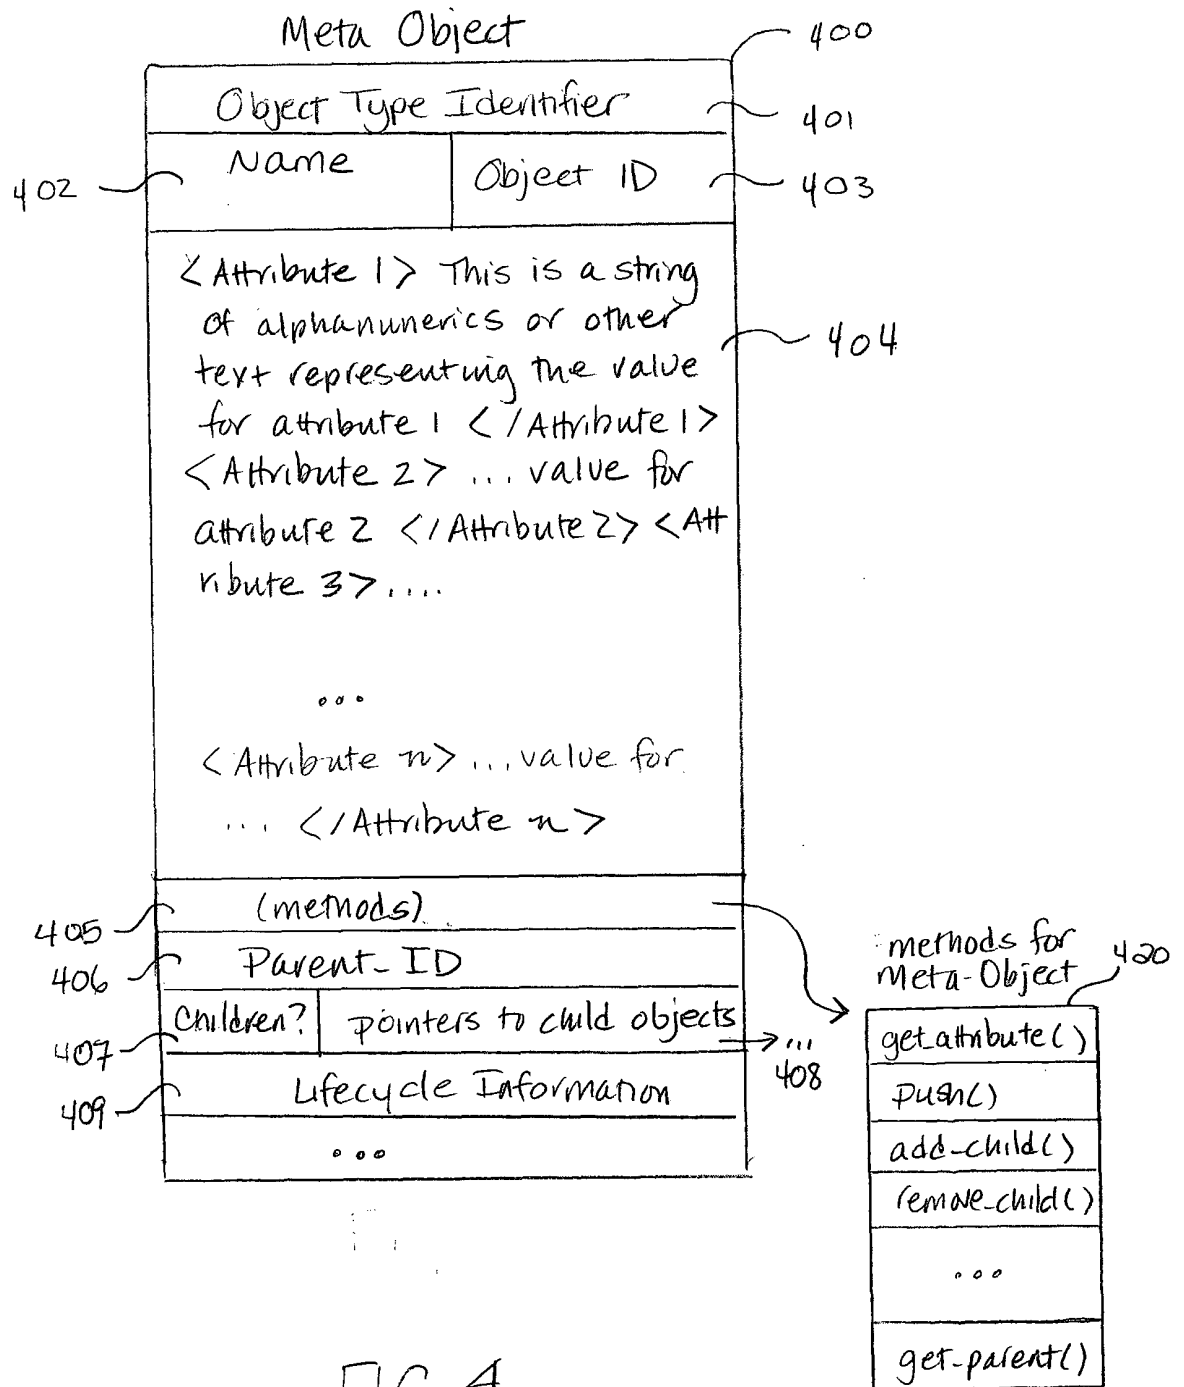 Meta Object
400
Object Type Identifier
401
402
Name
Object ID
403
<Attribute 1> This is a string
of alphanunerics or other
text representing the value
for attribute 1 </Attribute 1>
<Attribute 2> ... value for
attribute 2 </Attribute 2> <Att
ribute 3> ....
404
...
<Attribute n> ... value for
... </Attribute n>
405
(methods)
406
Parent_ID
407
Children?
pointers to child objects
...
408
409
Lifecycle Information
...
methods for
Meta-Object
420
get_attribute()
push()
add_child()
remove_child()
...
get_parent()
FIG. 4